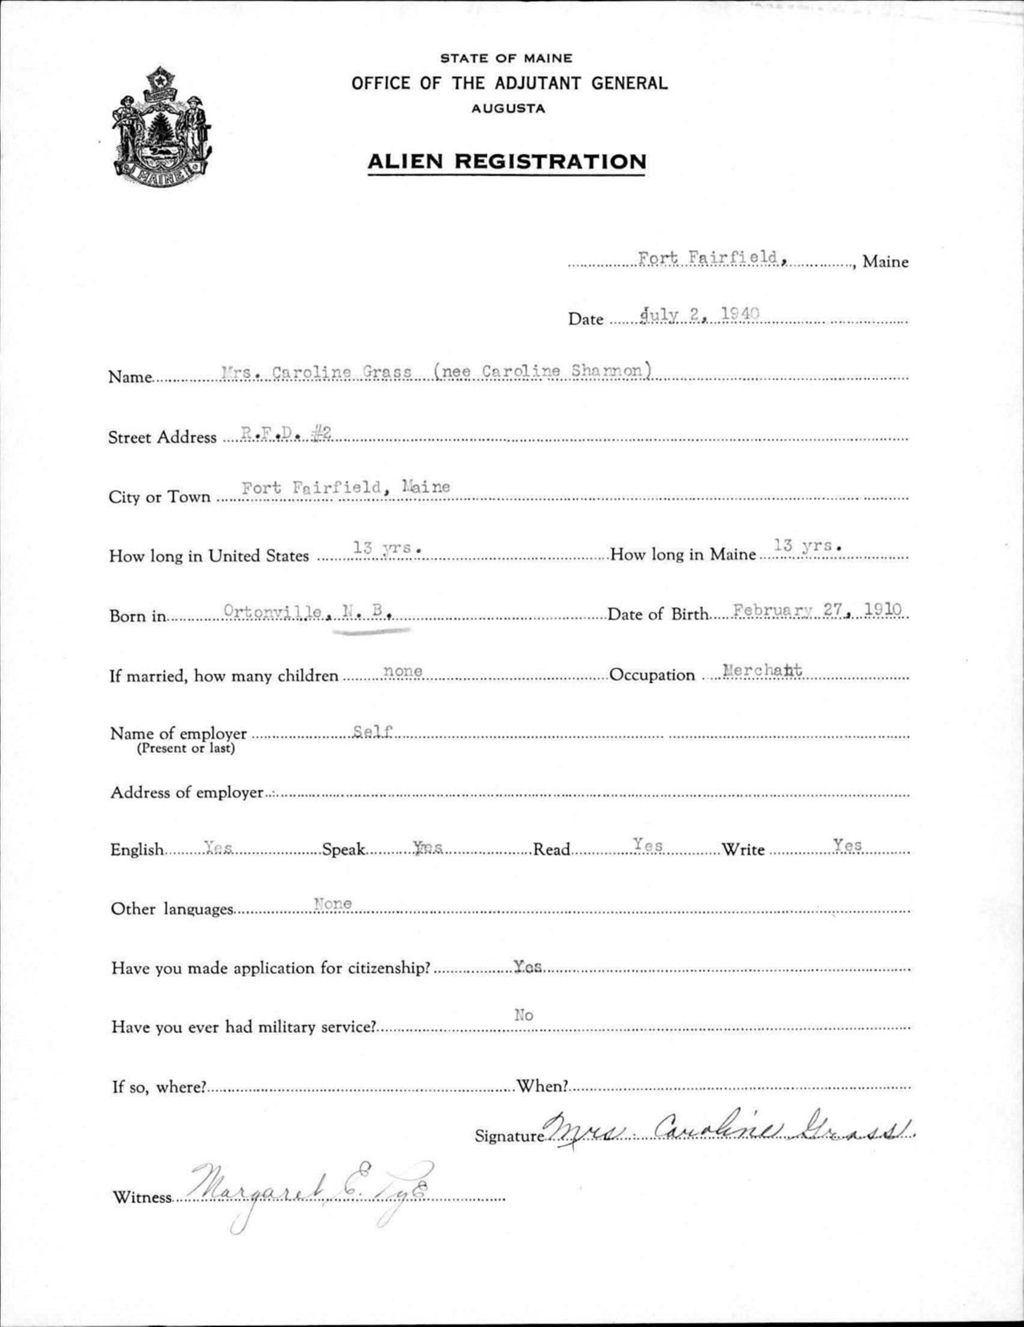 STATE OF MAINE
OFFICE OF THE ADJUTANT GENERAL
AUGUSTA
ALIEN REGISTRATION
MAINE
Fort Fairfield, , Maine
Date July 2, 1940
Name Mrs. Caroline Grass (nee Caroline Shannon)
Street Address R.F.D. #2
City or Town Fort Fairfield, Maine
How long in United States 13 yrs. How long in Maine 13 yrs.
Born in Ortonville, N. B. Date of Birth February 27, 1910
If married, how many children none Occupation Merchant
Name of employer Self
(Present or last)
Address of employer
English Yes Speak Yes Read Yes Write Yes
Other languages None
Have you made application for citizenship? Yes
Have you ever had military service? No
If so, where? When?
Signature Mrs. Caroline Grass.
Witness Margaret E. Pye